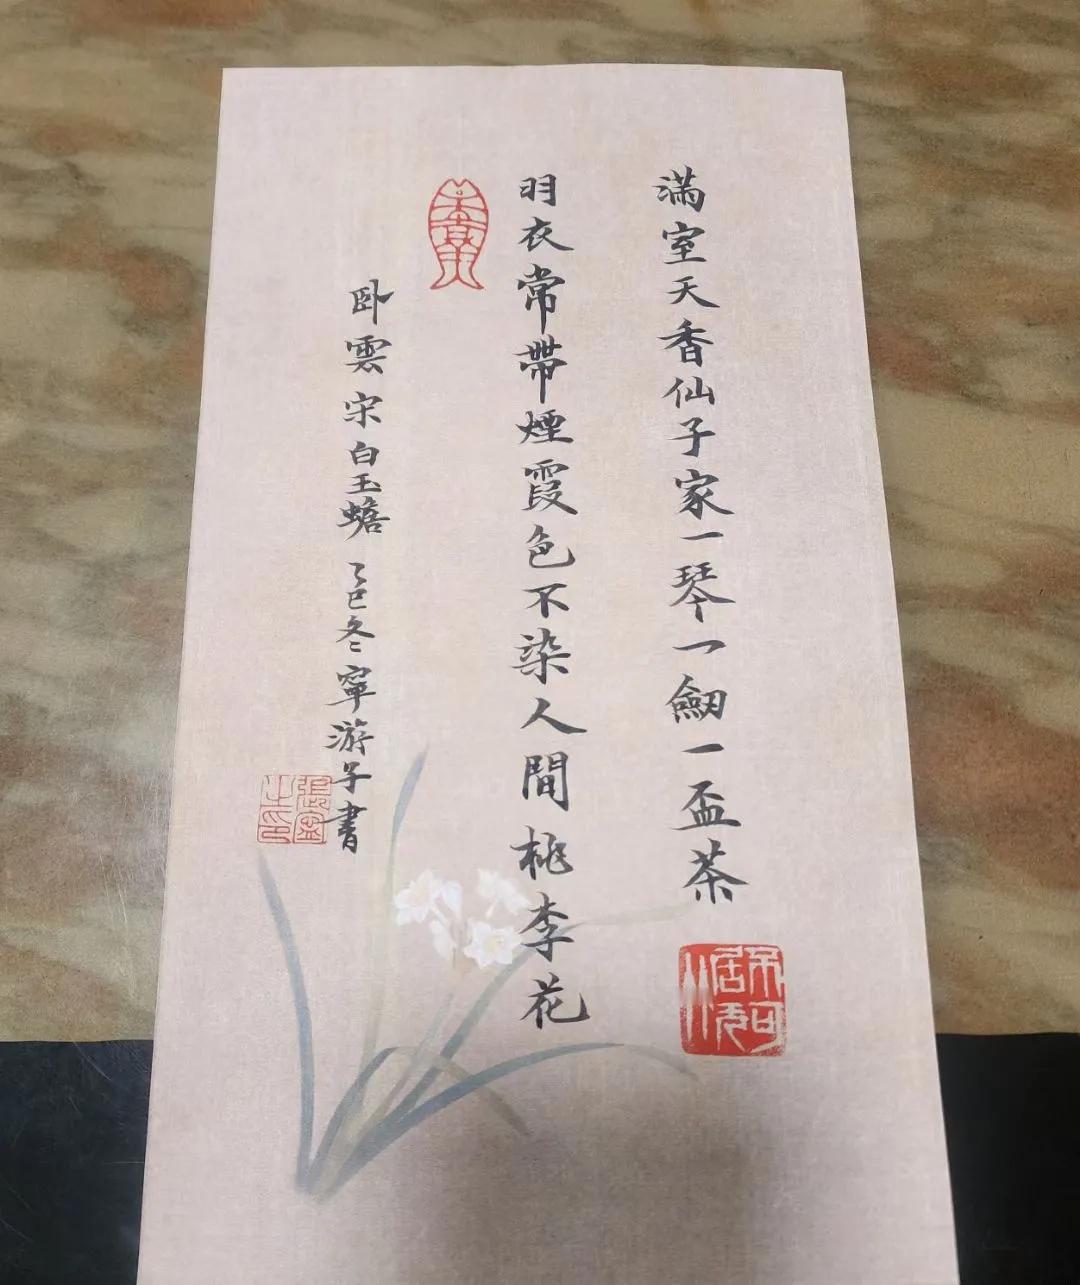 满室天香仙子家一琴一劔一盃茶
羽衣常帶煙霞色不染人間桃李花
卧雲宋白玉蟾乙巳冬寧游子書
張寧之印